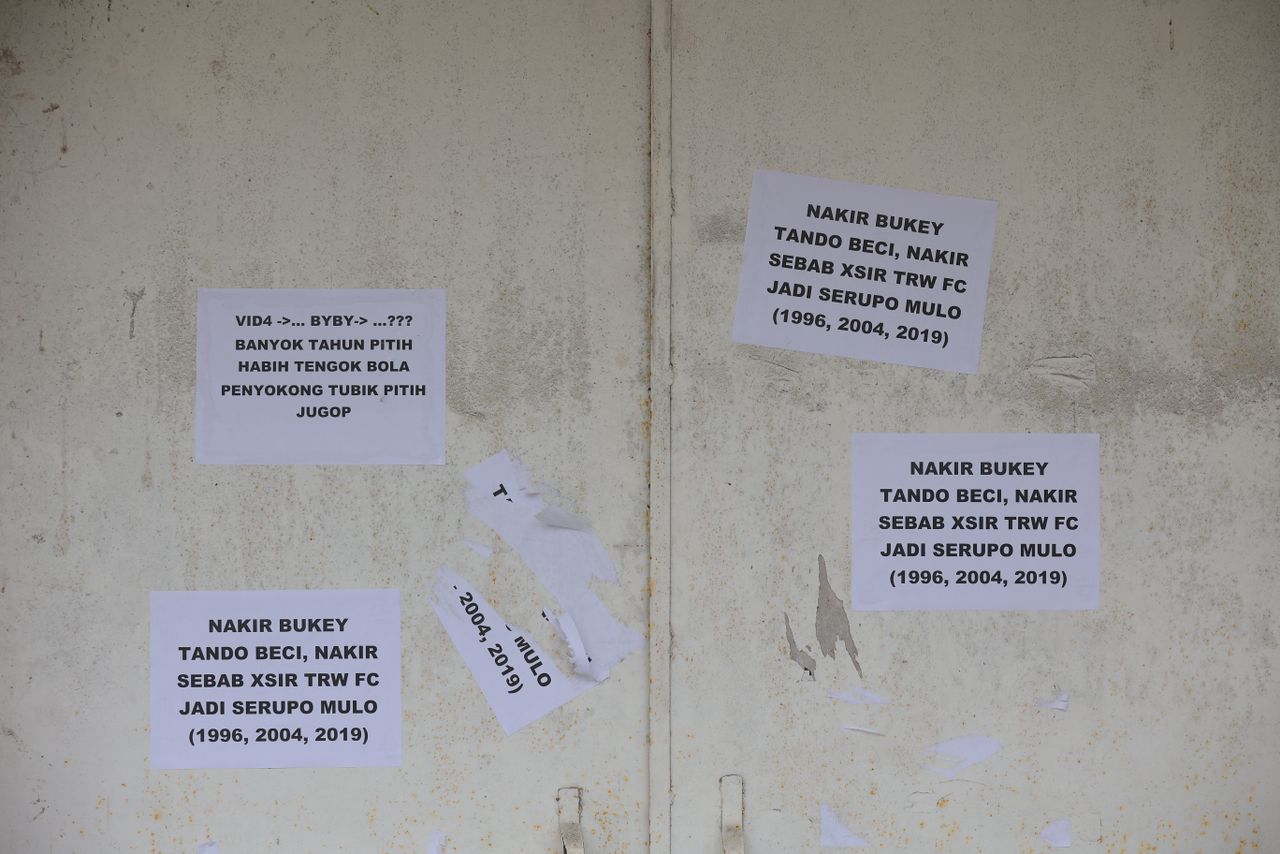 VID4 ->... BYBY-> ...???
BANYOK TAHUN PITIH
HABIH TENGOK BOLA
PENYOKONG TUBIK PITIH
JUGOP
NAKIR BUKEY
TANDO BECI, NAKIR
SEBAB XSIR TRW FC
JADI SERUPO MULO
(1996, 2004, 2019)
MULO
2004, 2019)
NAKIR BUKEY
TANDO BECI, NAKIR
SEBAB XSIR TRW FC
JADI SERUPO MULO
(1996, 2004, 2019)
NAKIR BUKEY
TANDO BECI, NAKIR
SEBAB XSIR TRW FC
JADI SERUPO MULO
(1996, 2004, 2019)